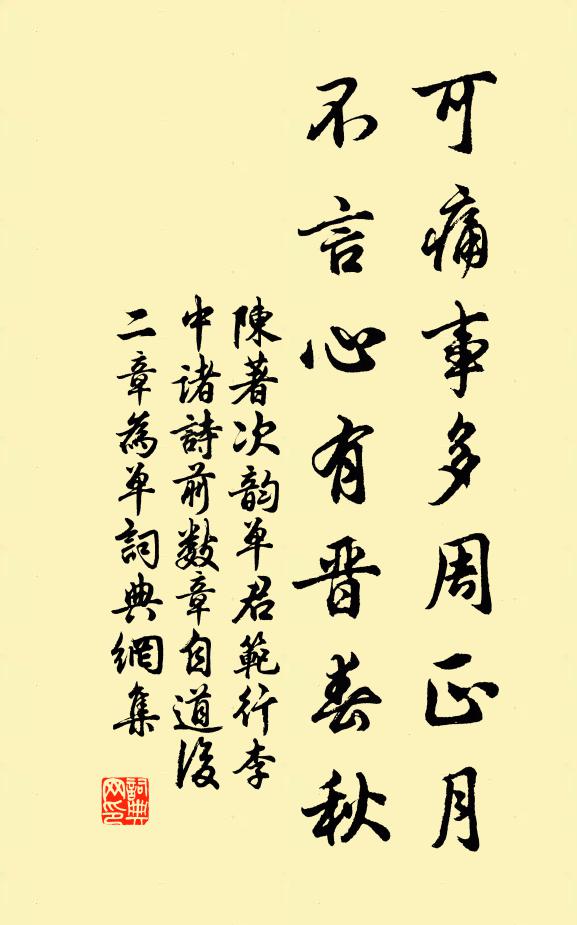 可痛事多周正月
不言心有晋春秋
陳著次韵单君範行李
中诸詩前数章自道後
二章為单詞典網集
詞典
网印